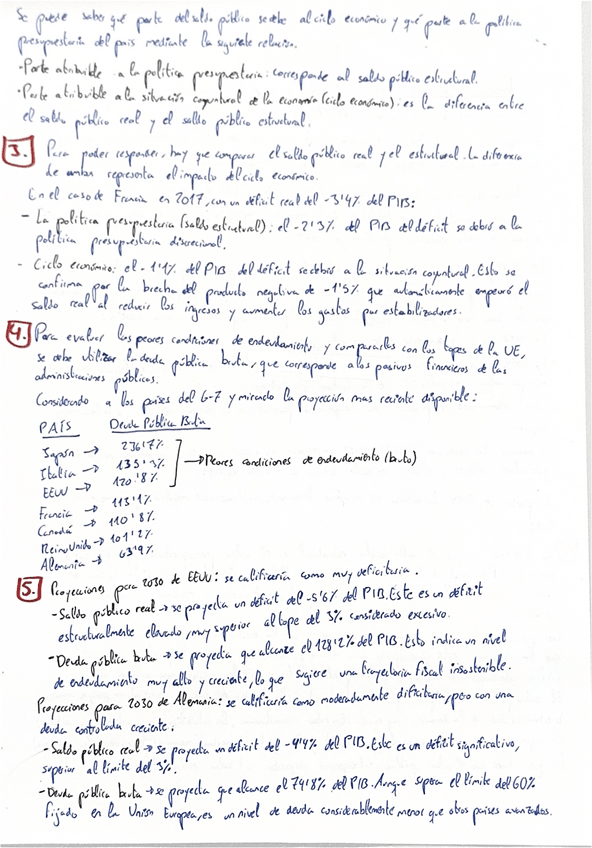 Se puede saber qué parte del saldo público se debe al ciclo económico y qué parte a la política
presupuestaria del país mediante la siguiente relación.
· Parte atribuible a la política presupuestaria: corresponde al saldo público estructural.
· Parte atribuible a la situación coyuntural de la economía (ciclo económico): es la diferencia entre
el saldo público real y el saldo público estructural.
3. Para poder responder, hay que comparar el saldo público real y el estructural. La diferencia
de ambas representa el impacto del ciclo económico.
En el caso de Francia en 2017, con un déficit real del -3'4% del PIB:
- La política presupuestaria (saldo estructural): el -2'3% del PIB del déficit se debió a la
política presupuestaria discrecional.
- Ciclo económico: el -1'1% del PIB del déficit se debió a la situación coyuntural. Esto se
confirma por la brecha del producto negativa de -1'5% que automáticamente empeoró el
saldo real al reducir los ingresos y aumentar los gastos por estabilizadores.
4. Para evaluar las peores condiciones de endeudamiento y compararlas con los topes de la UE,
se debe utilizar la deuda pública bruta, que corresponde a los pasivos financieros de las
administraciones públicas.
Considerando a los países del G-7 y mirando la proyección mas reciente disponible:
PAÍS Deuda Pública Bruta
Japón → 236'7%
Italia → 135'3%
EEUU → 120'8% → Peores condiciones de endeudamiento (bruto)
Francia → 113'1%
Canadá → 110'8%
Reino Unido → 101'2%
Alemania → 63'9%
5. Proyecciones para 2030 de EEUU: se calificaría como muy deficitaria.
- Saldo público real → se proyecta un déficit del -5'6% del PIB. Este es un déficit
estructuralmente elevado, muy superior al tope del 3% considerado excesivo.
- Deuda pública bruta → se proyecta que alcance el 128'2% del PIB. Esto indica un nivel
de endeudamiento muy alto y creciente, lo que sugiere una trayectoria fiscal insostenible.
Proyecciones para 2030 de Alemania: se calificaría como moderadamente dificitaria, pero con una
deuda controlada creciente.
- Saldo público real → se proyecta un déficit del -4'4% del PIB. Este es un déficit significativo,
superior al límite del 3%.
- Deuda pública bruta → se proyecta que alcance el 74'8% del PIB. Aunque supera el límite del 60%
fijado en la Unión Europea, es un nivel de deuda considerablemente menor que otros países avanzados.